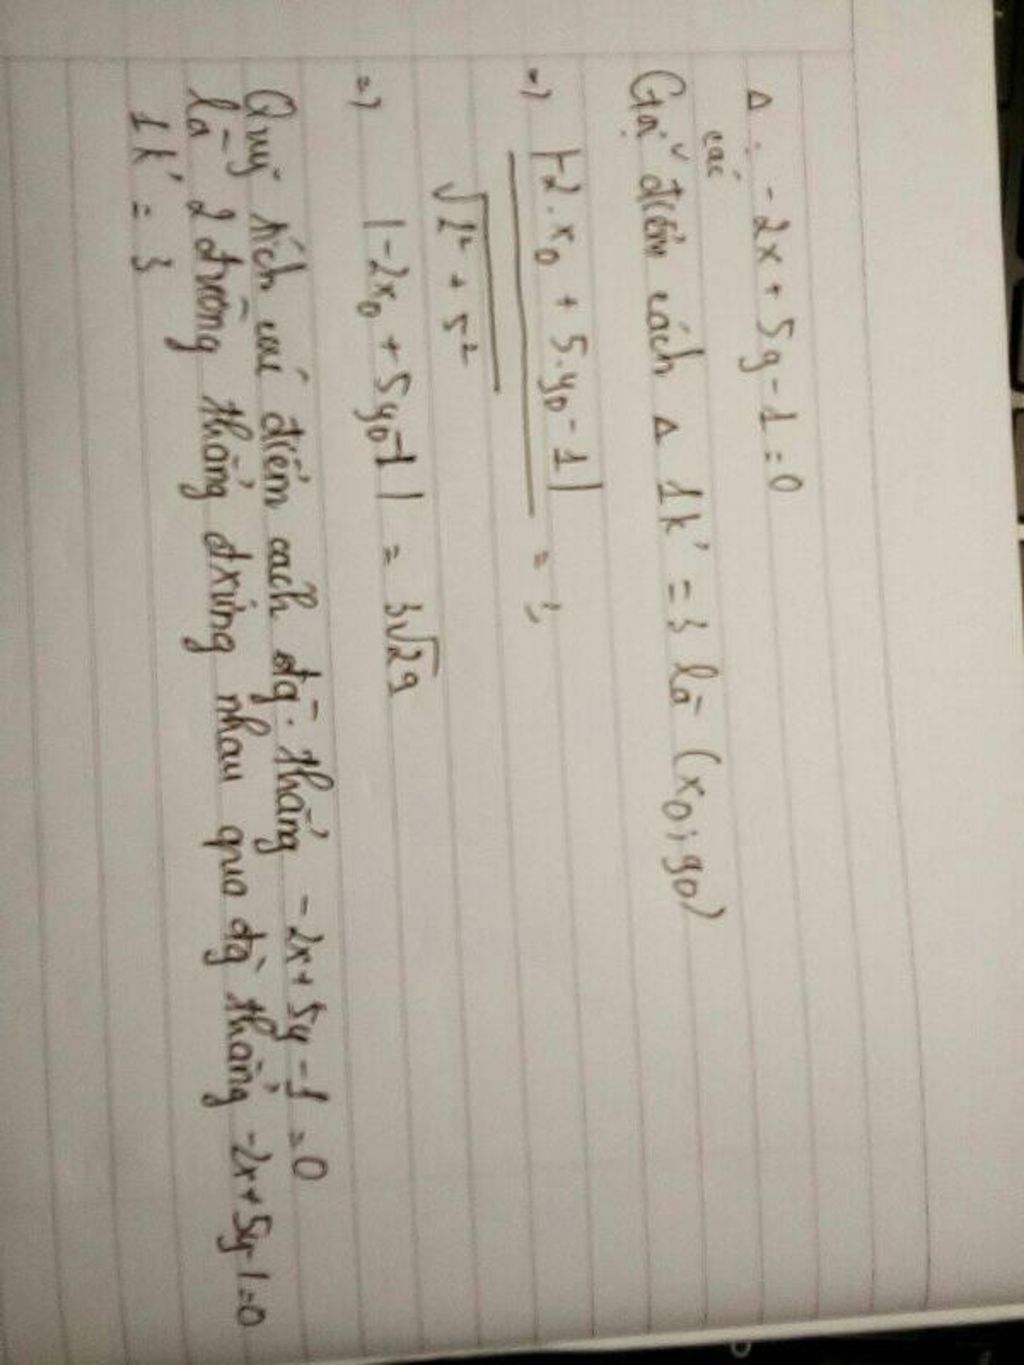 Δ : -2x + 5y - 1 = 0
Gọi các điểm cách Δ 1k' = 3 là (x0; y0)
=> |-2.x0 + 5.y0 - 1| / √2² + 5² = 3
=> |-2x0 + 5y0 - 1| = 3√29
Quỹ tích các điểm cách đg. thẳng -2x + 5y - 1 = 0
là 2 đường thẳng đxứng nhau qua đg thẳng -2x + 5y - 1 = 0
1k' = 3